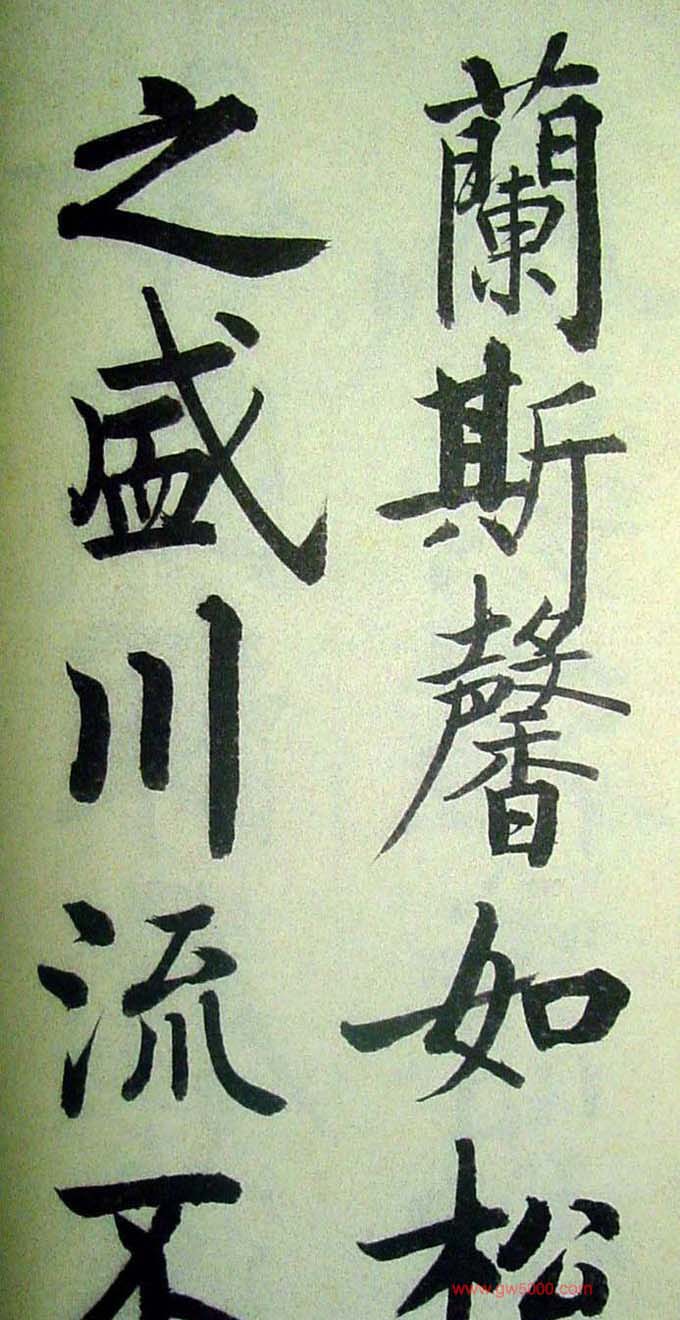 蘭斯馨如松
之盛川流不
www.gw5000.com